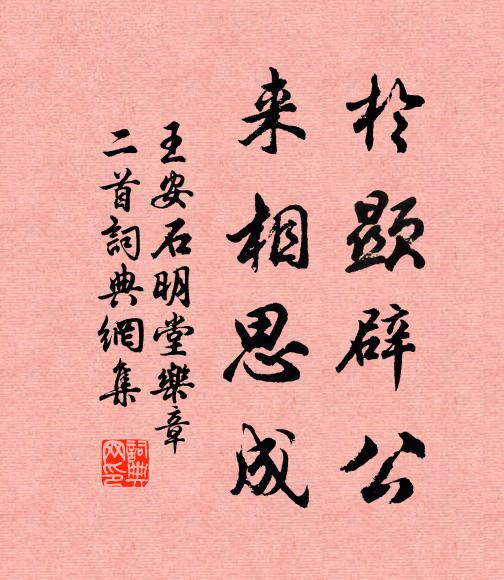 於顯辟公
来相思成
王安石明堂樂章
二首詞典網集
詞典網印